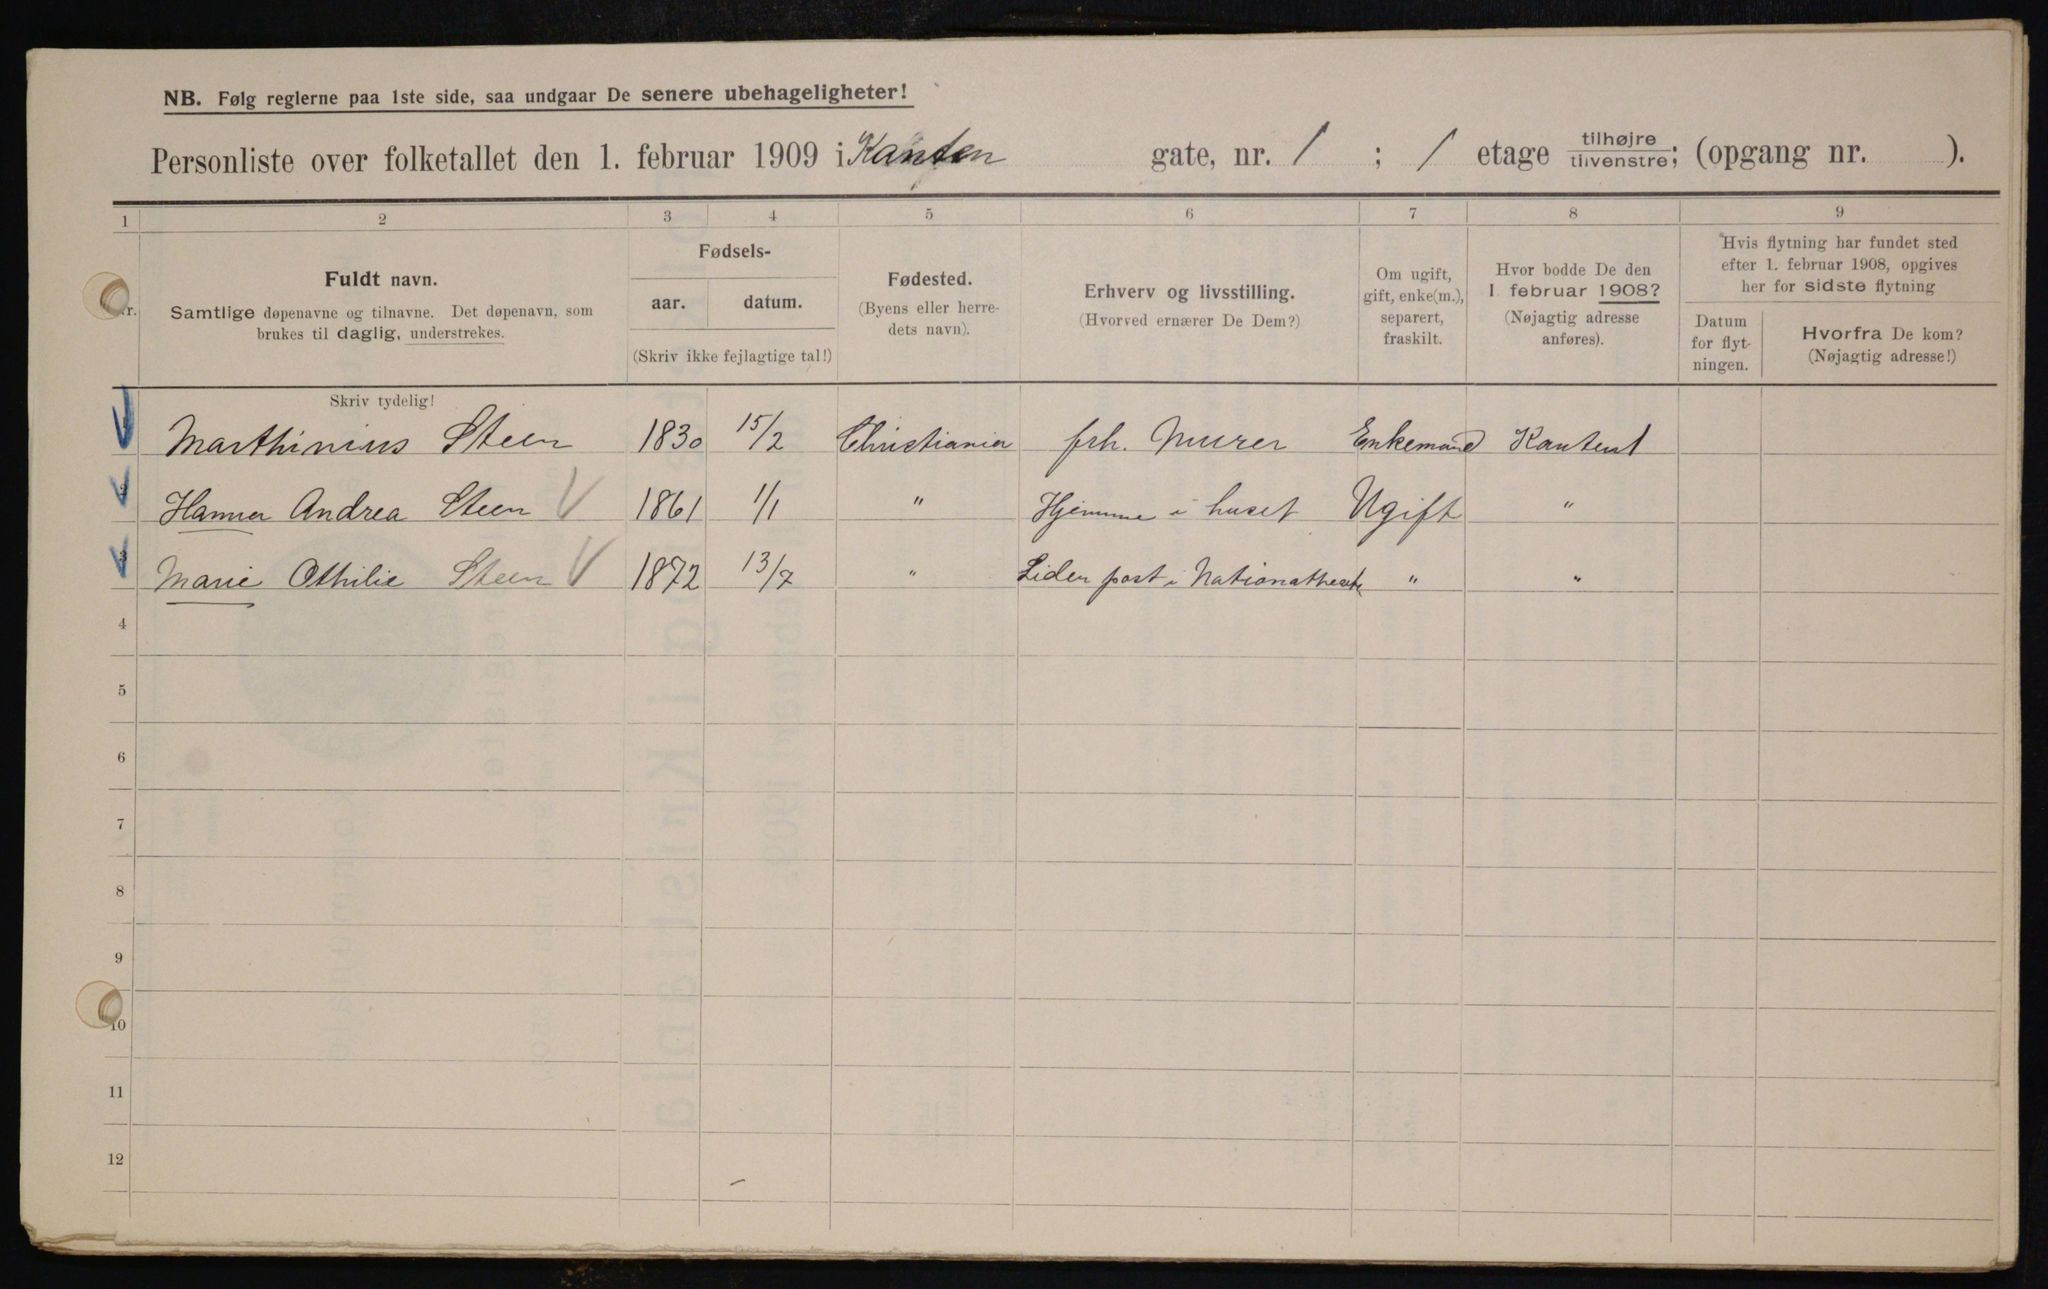 NB. Følg reglerne paa 1ste side, saa undgaar De senere ubehageligheter!
Personliste over folketallet den 1. februar 1909 i Kanten gate, nr. 1 ; 1 etage tilhøjre tilvenstre; (opgang nr. ).
1 2 3 4 5 6 7 8 9
Fuldt navn.
Samtlige døpenavne og tilnavne. Det døpenavn, som
brukes til daglig, understrekes.
Fødsels-
aar. datum.
(Skriv ikke fejlagtige tal!)
Fødested.
(Byens eller herre-
dets navn).
Erhverv og livsstilling.
(Hvorved ernærer De Dem?)
Om ugift,
gift, enke(m.),
separert,
fraskilt.
Hvor bodde De den
1. februar 1908?
(Nøjagtig adresse
anføres).
Hvis flytning har fundet sted
efter 1. februar 1908, opgives
her for sidste flytning
Datum
for flyt-
ningen.
Hvorfra De kom?
(Nøjagtig adresse!)
Skriv tydelig!
1 Marthinius Steen 1830 15/2 Christiania frh. Murer Enkemand Kanten 1
2 Hanna Andrea Steen 1861 1/1 " Hjemme i huset Ugift "
3 Marie Othilie Steen 1872 13/7 " Liden post i Nationaltheatr " "
4
5
6
7
8
9
10
11
12